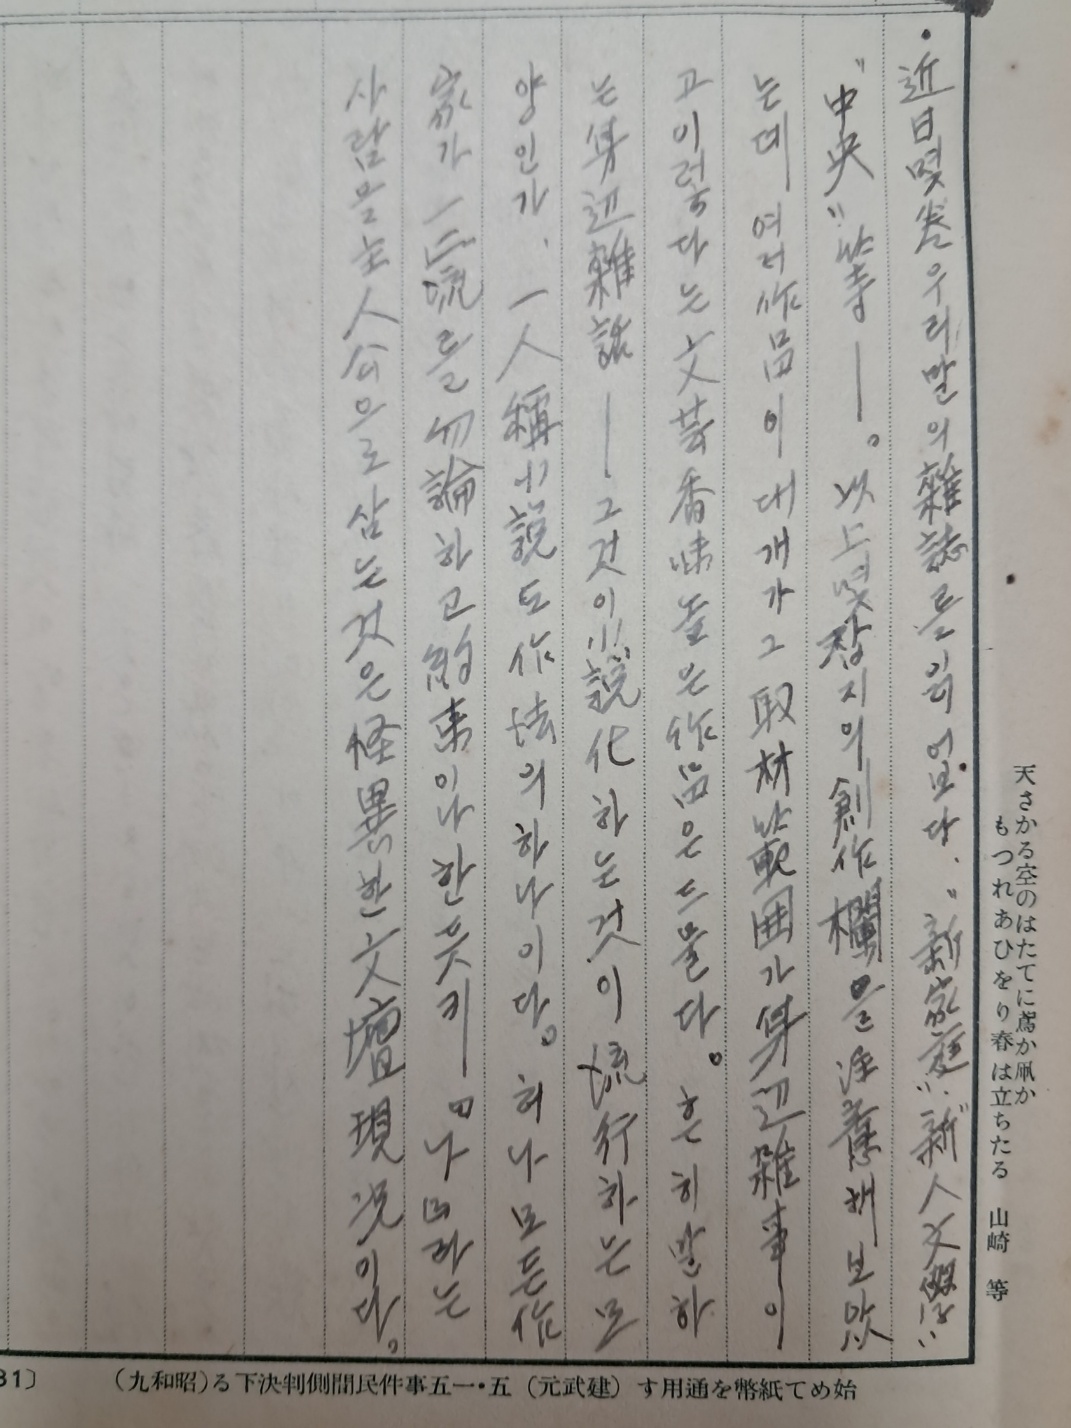 •近日몇 춘 우리말의 雜誌를 읽어 보다. “新家庭”, “新人文學”,
“中央” 等 ——。 以上 몇 잡지의 創作欄을 注意해 보았
는데 여러 作品이 대개가 그 取材 範囲가 身辺雜事이
고 이렇다는 文芸香味 높은 作品은 드물다。 흔히 말하
는 身辺雜話 —— 그것이 小說化하는 것이 流行하는 모
양인가, 一人稱小說도 作法의 하나이다。 허나 모든 作
家가 一二流를 勿論하고 約束이나 한 듯키 —— “나”라는
사람을 主人公으로 삼는 것은 怪異한 文壇現況이다。
天さかる空のはたてに鳶か凧か
もつれあひをり春は立ちたる 山崎 等
始めて紙幣を通用す（建武元）五・一五事件民間側判決下る（昭和九）
31〕